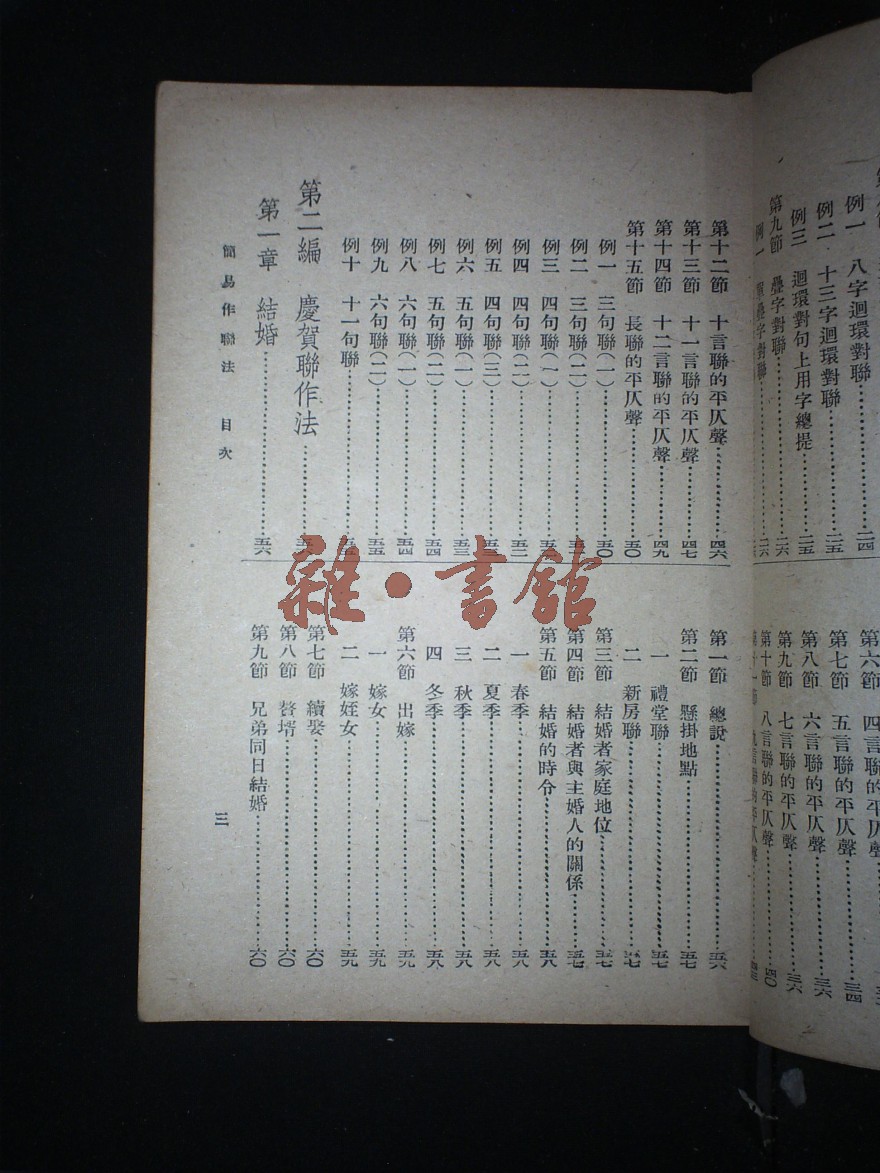 例一 八字迴環對聯……二四
例二 十三字迴環對聯……二五
例三 迴環對句上用字總提……二五
第九節 疊字對聯……二六
例一 單疊字對聯……二六
第六節 四言聯的平仄聲
第七節 五言聯的平仄聲……三四
第八節 六言聯的平仄聲……三六
第九節 七言聯的平仄聲……三六
第十節 八言聯的平仄聲……四〇
第十一節 九言聯的平仄聲……
第十二節 十言聯的平仄聲……四六
第十三節 十一言聯的平仄聲……四七
第十四節 十二言聯的平仄聲……四九
第十五節 長聯的平仄聲……五〇
例一 三句聯(一)……五〇
例二 三句聯(二)……
例三 四句聯(一)……
例四 四句聯(二)……五二
例五 四句聯(三)……
例六 五句聯(一)……五三
例七 五句聯(二)……五四
例八 六句聯(一)……五四
例九 六句聯(二)……五五
例十 十一句聯……
第二編 慶賀聯作法……
第一章 結婚……五六
第一節 總說……五六
第二節 懸掛地點……五七
一 禮堂聯……五七
二 新房聯……五七
第三節 結婚者家庭地位……五七
第四節 結婚者與主婚人的關係……五七
第五節 結婚的時令……五八
一 春季……五八
二 夏季……五八
三 秋季……五八
四 冬季……五八
第六節 出嫁……五九
一 嫁女……五九
二 嫁姪女……五九
第七節 續娶……六〇
第八節 贅壻……六〇
第九節 兄弟同日結婚……六〇
簡易作聯法 目次
三
雜·書館